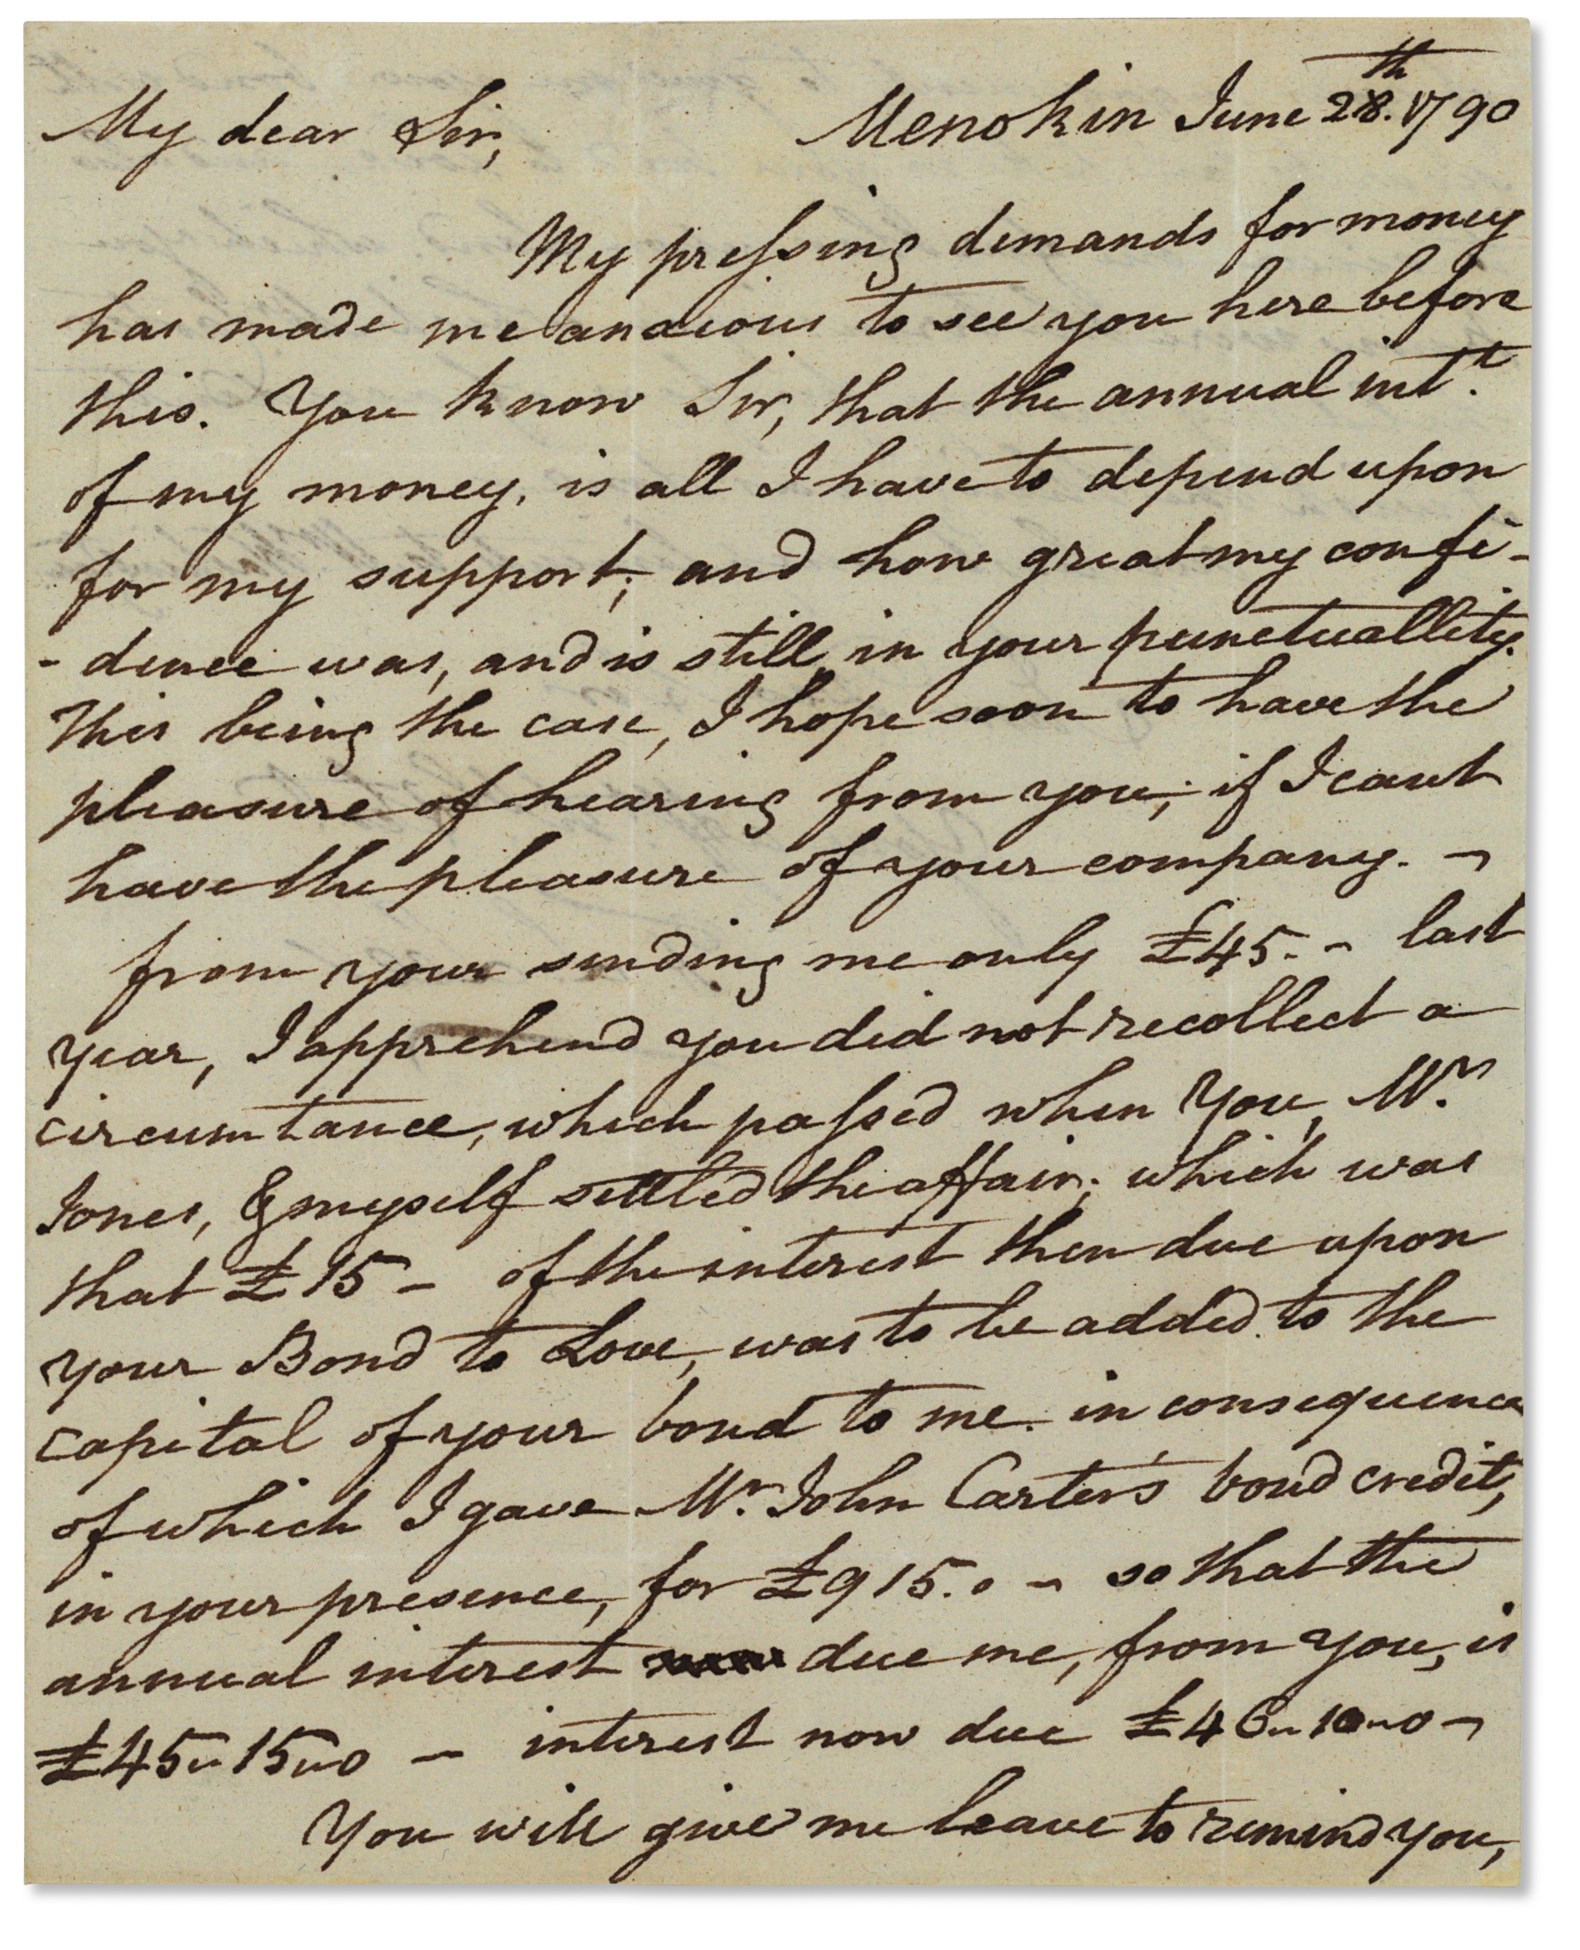 Menokin June 28.th 1790
My dear Sir,
My pressing demands for money
has made me anxious to see you here before
this. You know Sir, that the annual int.t
of my money, is all I have to depend upon
for my support; and how great my confi-
-dence was, and is still, in your punctuallity.
This being the case, I hope soon to have the
pleasure of hearing from you; if I cant
have the pleasure of your company. –
from your sending me only £45. – last
year, I apprehend you did not recollect a
circumtance, which passed when You, Mr.
Jones, & myself settled the affair; which was
that £15 – of the interest then due upon
your Bond to Love, was to be added to the
capital of your bond to me. in consequence
of which I gave Mr. John Carter's bond credit,
in your presence, for £915.0 – so that the
annual interest due me, from you, is
£45 " 15 " 0 – interest now due £46 " 10 " 0 –
You will give me leave to remind you,